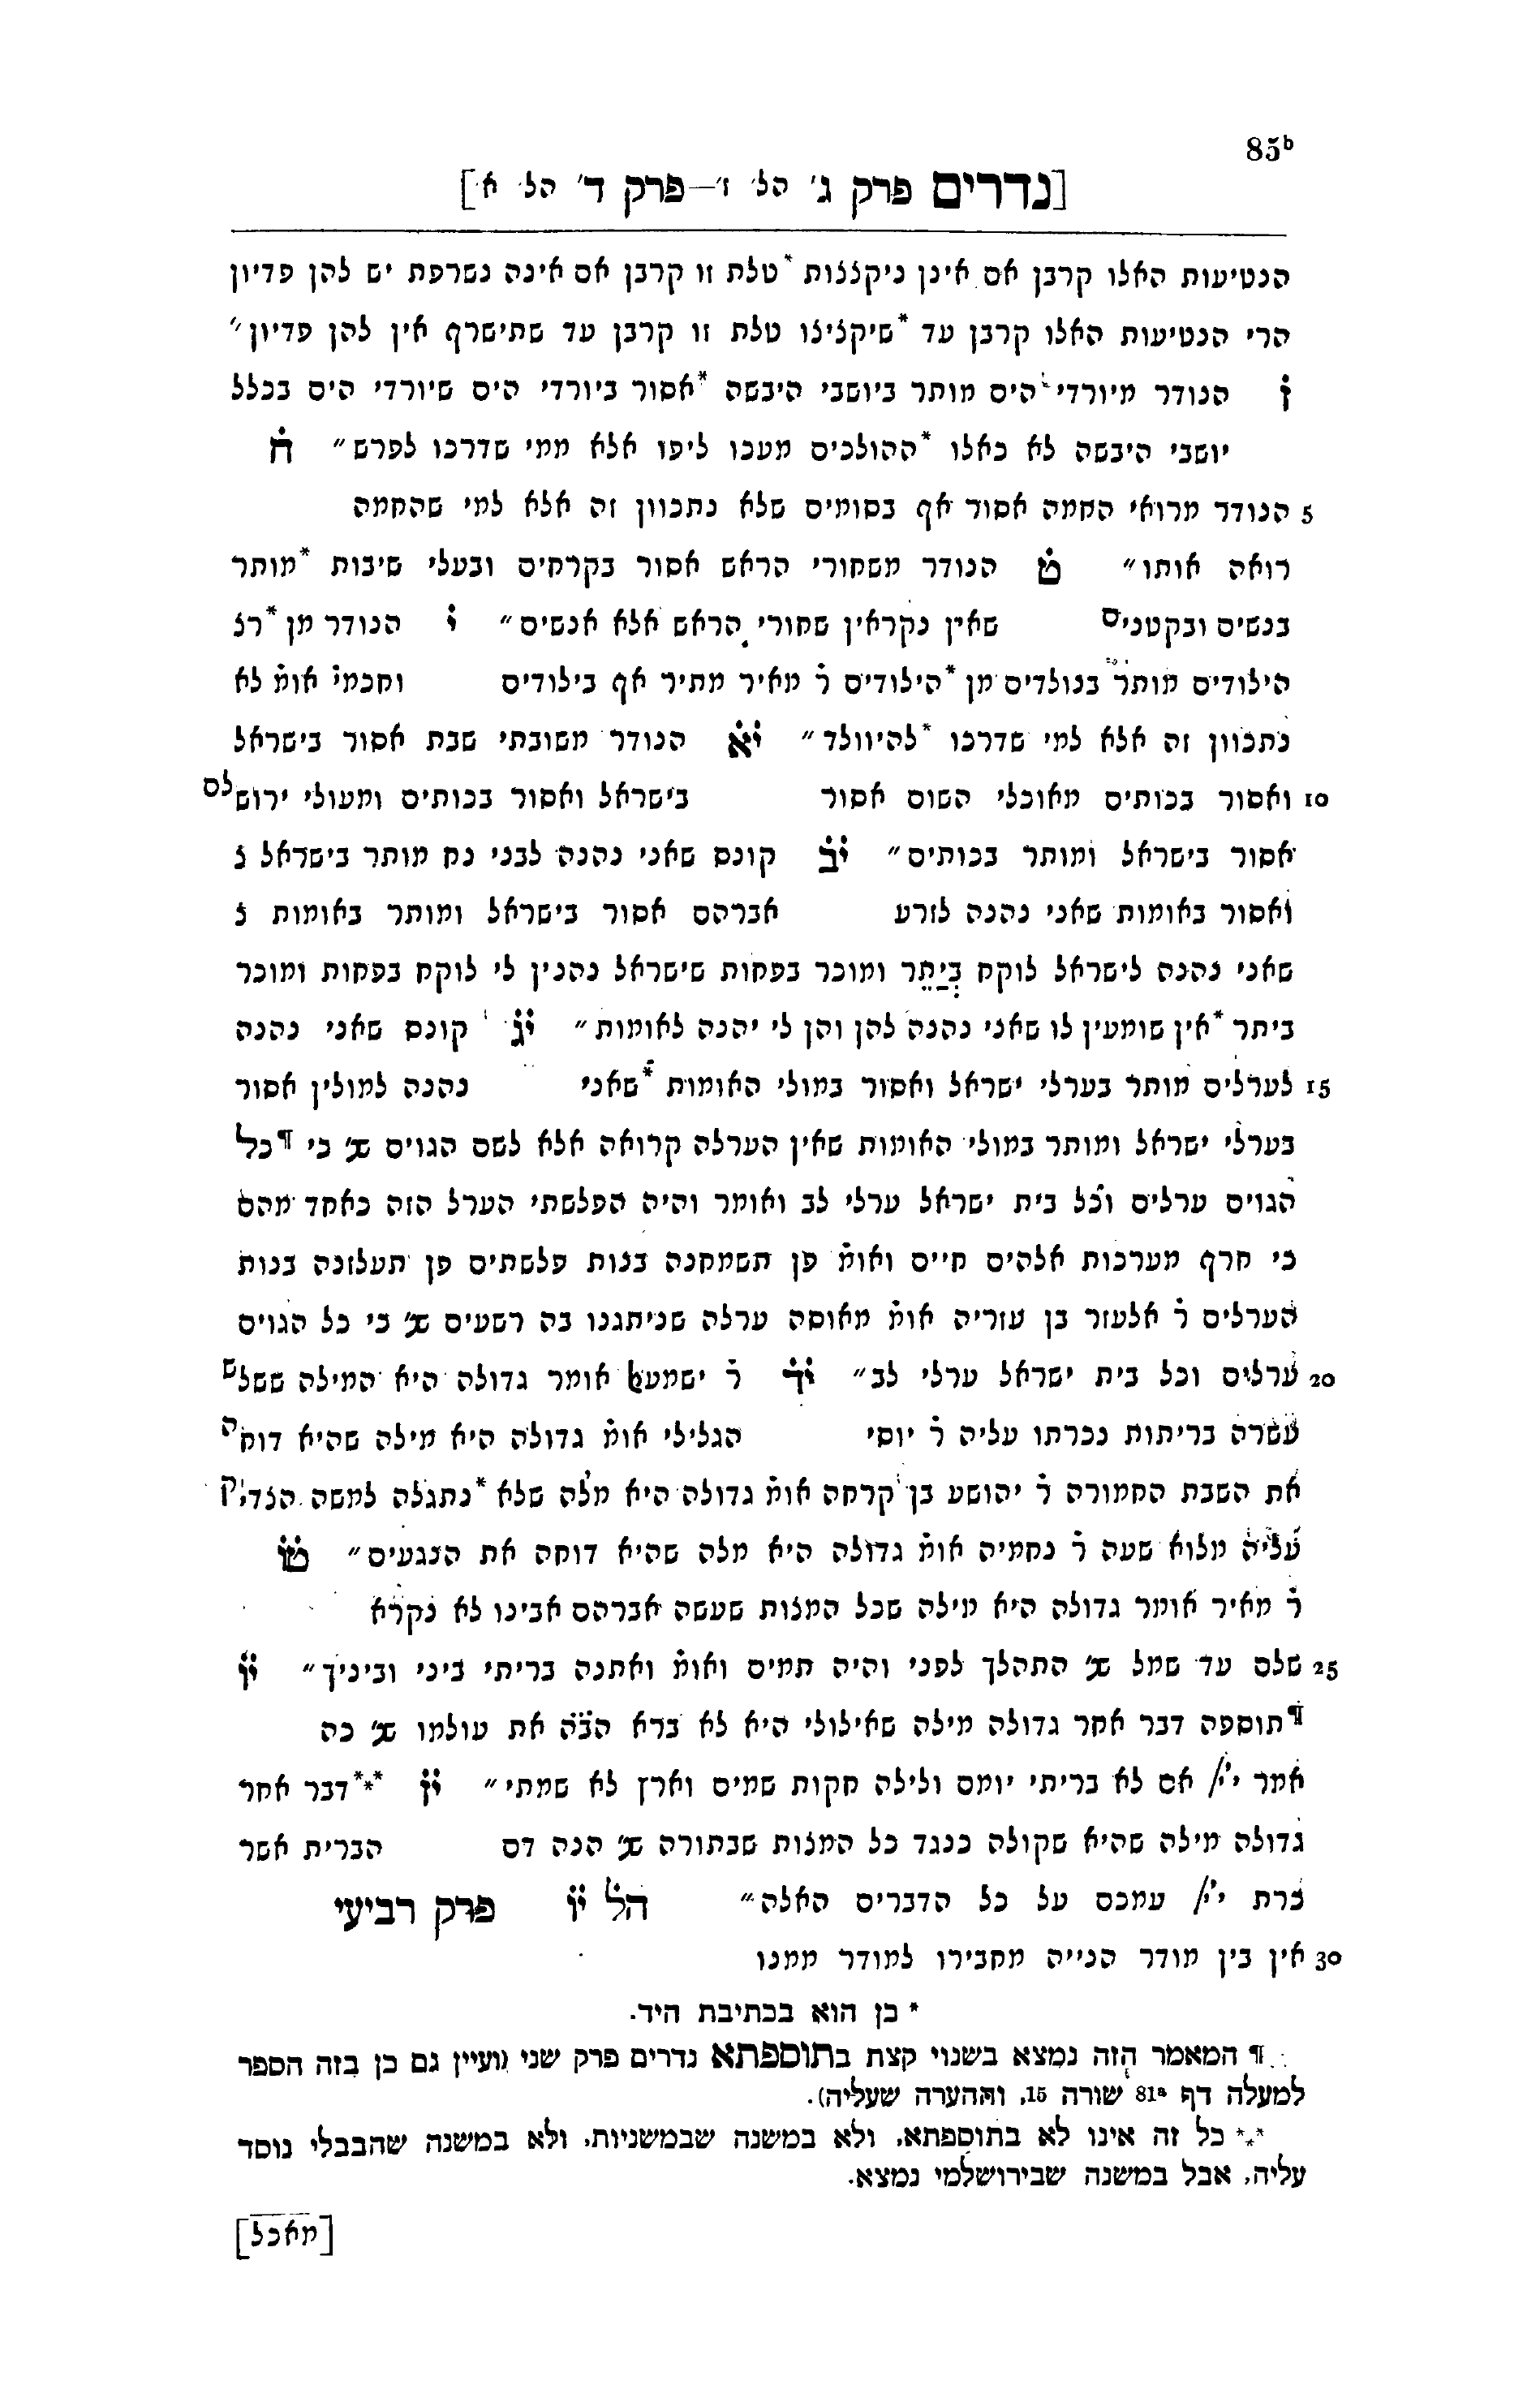 85ᵇ
[נדרים פרק ג׳ הל׳ ז׳—פרק ד׳ הל׳ א׳]
הנטיעות האלו קרבן אם אינן ניקצצות *טלת זו קרבן אם אינה נשרפת יש להן פדיון
הרי הנטיעות האלו קרבן עד *שיקציצו טלת זו קרבן עד שתישרף אין להן פדיון״
ז הנודר מיורדי הים מותר ביושבי היבשה *אסור ביורדי הים שיורדי הים בכלל
יושבי היבשה לא כאלו *ההולכים מעכו ליפו אלא ממי שדרכו לפרש״ ח
5 הנודר מרואי החמה אסור אף בסומים שלא נתכוון זה אלא למי שהחמה
רואה אותו״ ט הנודר משחורי הראש אסור בקרחים ובעלי שיבות *מותר
בנשים ובקטנים שאין נקראין שחורי הראש אלא אנשים״ י הנודר מן *רצ
הילודים מותר בנולדים מן *הילודים ר̇ מאיר מתיר אף בילודים וחכמי̇ אומ̇ לא
נתכוון זה אלא למי שדרכו *להיוולד״ יא הנודר משובתי שבת אסור בישראל
10 ואסור בכותים מאוכלי השום אסור בישראל ואסור בכותים ומעולי ירושלם
אסור בישראל ומותר בכותים״ יב קונם שאני נהנה לבני נח מותר בישראל צ
ואסור באומות שאני נהנה לזרע אברהם אסור בישראל ומותר באומות צ
שאני נהנה לישראל לוקח בְיַתֵר ומוכר בפחות שישראל נהנין לי לוקח בפחות ומוכר
ביתר *אין שומעין לו שאני נהנה להן והן לי יהנה לאומות״ יג קונם שאני נהנה
15 לערלים מותר בערלי ישראל ואסור במולי האומות *שאני נהנה למולין אסור
בערלי ישראל ומותר במולי האומות שאין הערלה קרואה אלא לשם הגוים שנ׳ כי ¶כל
הגוים ערלים וכל בית ישראל ערלי לב ואומר והיה הפלשתי הערל הזה כאחד מהם
כי חרף מערכות אלהים חיים ואומ̇ פן תשמחנה בנות פלשתים פן תעלזנה בנות
הערלים ר̇ אלעזר בן עזריה אומ̇ מאוסה ערלה שניתגנו בה רשעים שנ׳ כי כל הגוים
20 ערלים וכל בית ישראל ערלי לב״ יד ר̇ ישמעאל אומר גדולה היא המילה ששלש
עשרה בריתות נכרתו עליה ר̇ יוסי הגלילי אומ̇ גדולה היא מילה שהיא דוחה
את השבת החמורה ר̇ יהושע בן קרחה אומ̇ גדולה היא מלה שלא *נתגלה למשה הצדיק
עליה מלוא שעה ר̇ נחמיה אומ̇ גדולה היא מלה שהיא דוחה את הנגעים״ טו
ר̇ מאיר אומר גדולה היא מילה שכל המצות שעשה אברהם אבינו לא נקרא
25 שלם עד שמל שנ׳ התהלך לפני והיה תמים ואומ̇ ואתנה בריתי ביני וביניך״ יו
¶תוספה דבר אחר גדולה מילה שאילולי היא לא ברא הב̇ה̇ את עולמו שנ׳ כה
אמר י״י אם לא בריתי יומם ולילה חקות שמים וארץ לא שמתי״ יז ***דבר אחר
גדולה מילה שהיא שקולה כנגד כל המצות שבתורה שנ׳ הנה דם הברית אשר
כרת י״י עמכם על כל הדברים האלה״ הל יו פרק רביעי
30 אין בין מודר הנייה מחבירו למודר ממנו
* כן הוא בכתיבת היד.
¶ המאמר הזה נמצא בשנוי קצת בתוספתא נדרים פרק שני (ועיין גם כן בזה הספר
למעלה דף 81ᵃ שורה 15, וההערה שעליה).
*** כל זה אינו לא בתוספתא, ולא במשנה שבמשניות, ולא במשנה שהבבלי נוסד
עליה, אבל במשנה שבירושלמי נמצא.
[מאכל]